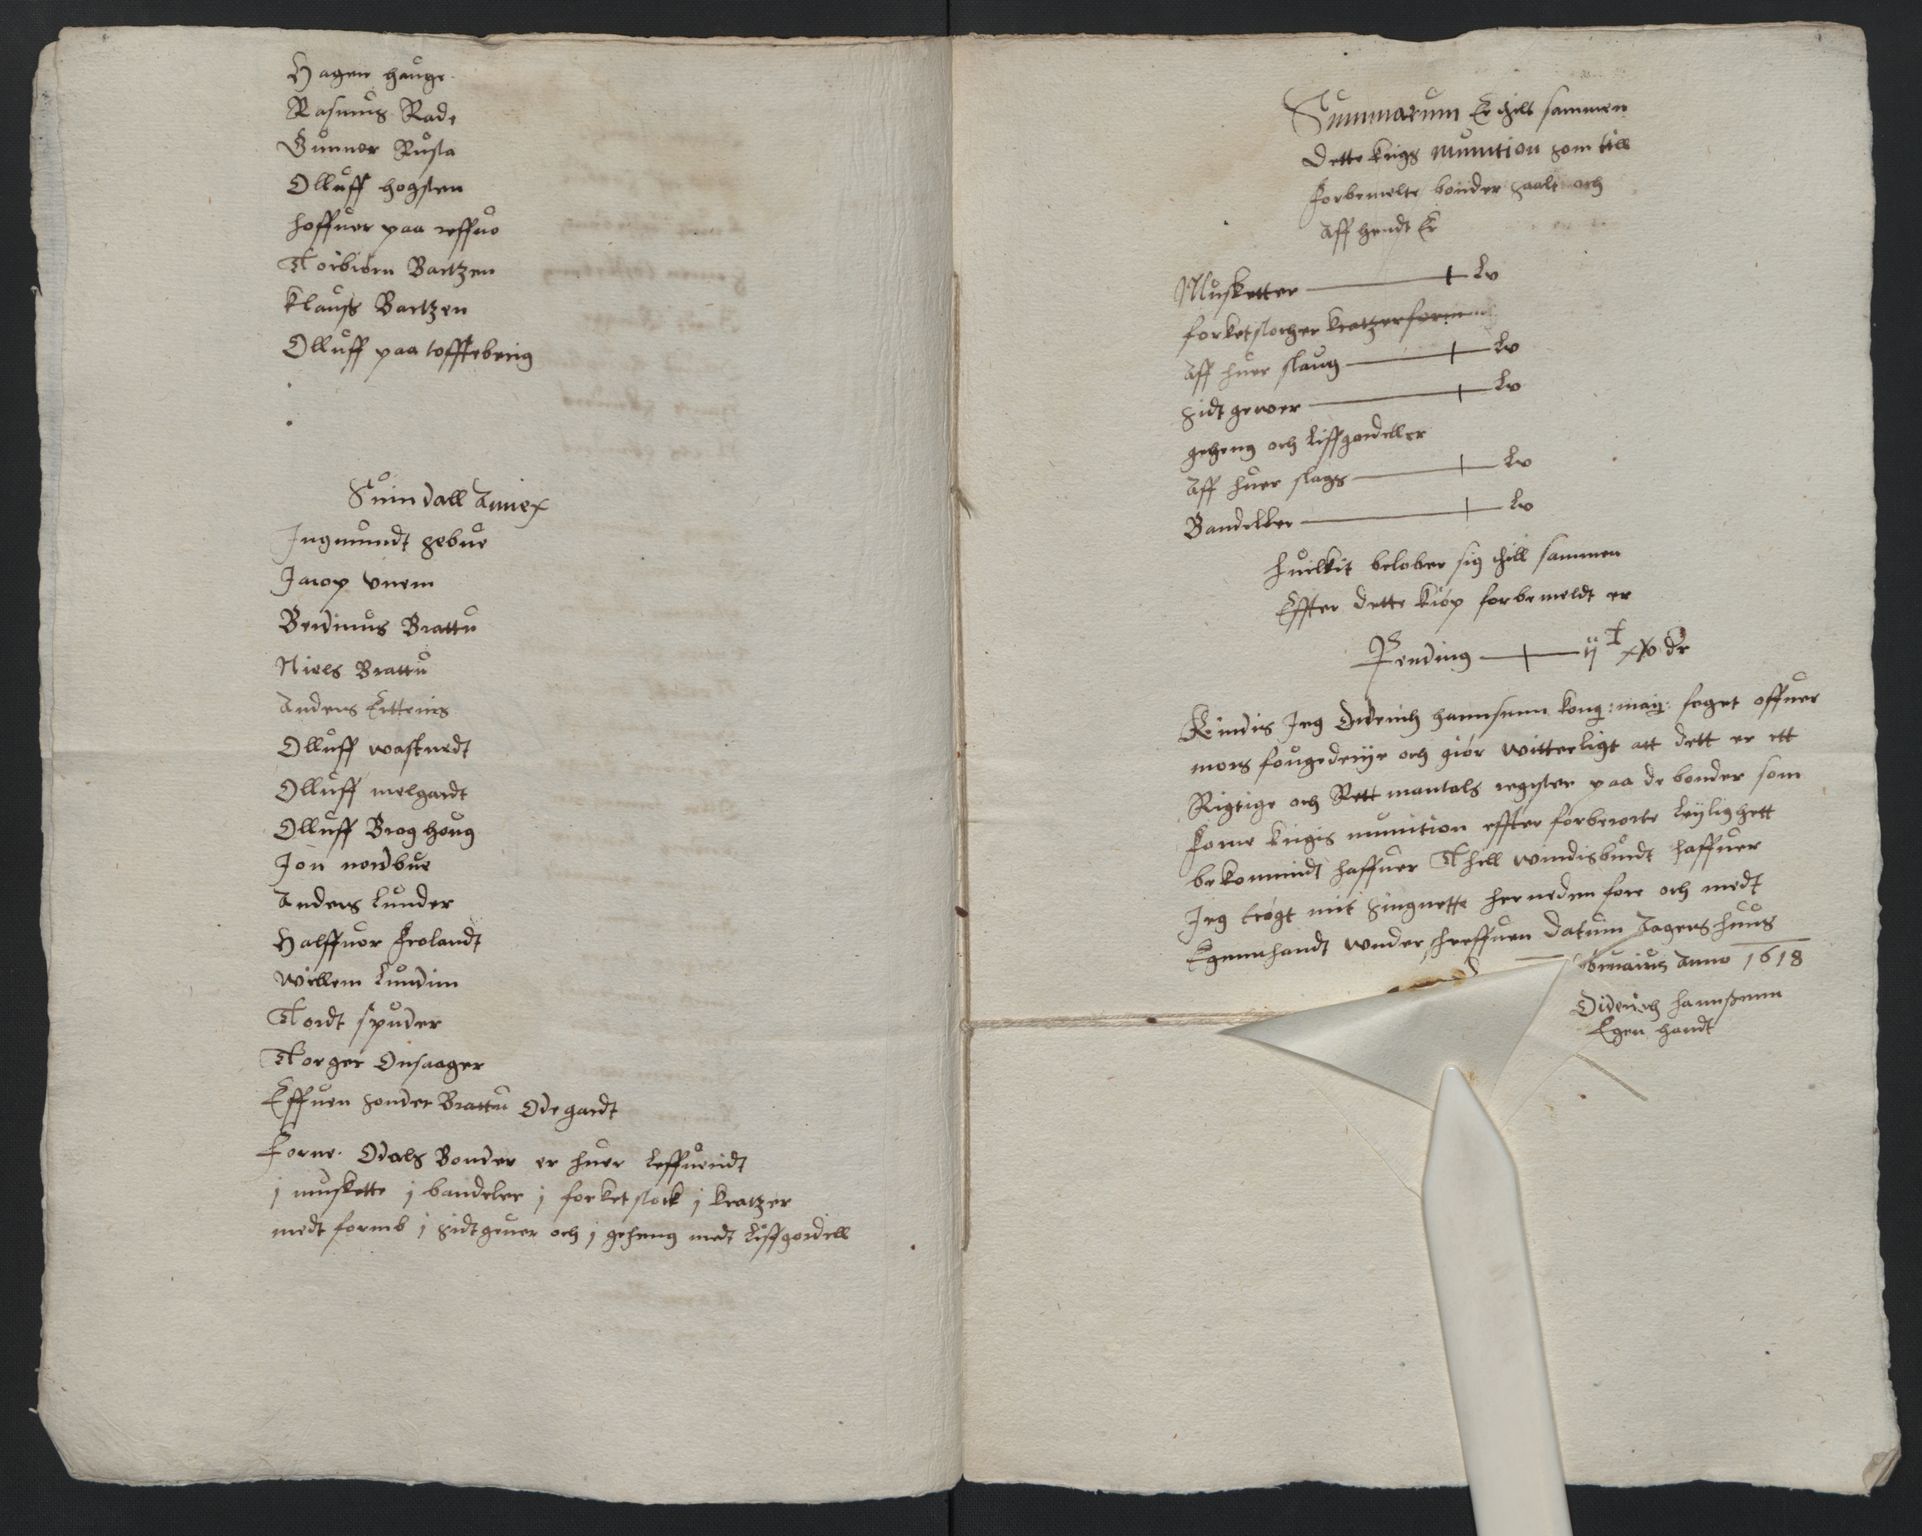 Hagen hauge
Rasmus Rade
Gunner Rusta
Olluff hogsten
hoffuer paa reffuo
Torbiorn Bartzen
Klauss Bartzen
Olluff paa toffteberig
Suindall Annex
Ingmundt Sebue
Jacop Vnem
Berdinus Brattu
Niels Brattu
Anders
Olluff wastuedt
Olluff melgardt
Olluff Brog houg
Jon nordbue
Anders Lunder
Halffuor Frolandt
Willem Lundim
Tordt spuder
Torger Onsaager
Effuen Sonder Brattu Ode gardt
Forne. Odals Bonder er huer Leffuerdt
j muskette j bandeler j forket stock j kratzer
medt formb j sidt geuer och j geheng medt Liffgordell
Summarum Er thill sammen
Dette krigs munition som till
forbemelte bonder saalt och
Aff hendt Er
Musketter Lv
forketstocher kratzer
Aff huer slaug Lv
Sidt gewer Lv
geheng och Liffgordeller
Aff huer slags Lv
Bandeller Lv
huilkit belober sig thill sammen
Effter dette kiøp forbemeldt er
Pending ij c xv dr
Kindis Jeg Diderich hannsenn kong: may: foget offuer
mors fougederije och giør witterligt att dett er ett
Rigtige och Rett mantals register paa de bonder som
forne krigis munition effter forberorte Leylighett
bekommidt haffuer Thill windisburdt haffuer
Jeg trøgt mit Singnette her neden fore och medt
Egennhandt wnder schreffuen Datum Aagershuus
bruarius Anno 1618
Diderich hannsenn
Egen handt